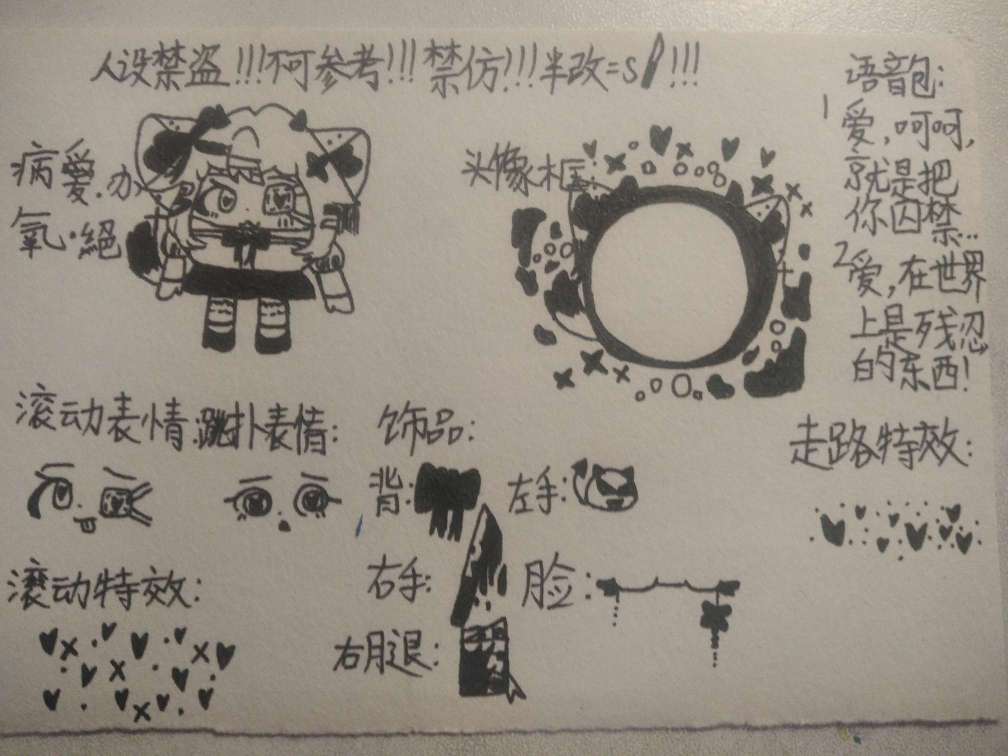 人设禁盗!!!不可参考!!!禁仿!!!半改=s!!!
病爱.办
氧.絕
头像框:
语音包:
1爱,呵呵,
就是把
你囚禁...
2爱,在世界
上是残忍
的东西!
滚动表情:跳扑表情:
饰品:
背:
左手:
右手:
脸:
右腿:
走路特效:
滚动特效: